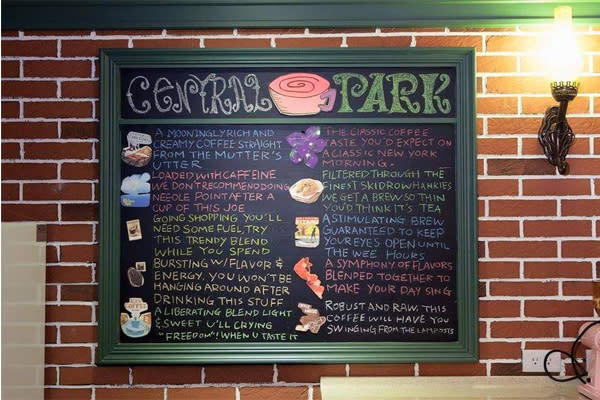 CENTRAL PARK
A MOONINGLY RICH AND
CREAMY COFFEE STRAIGHT
FROM THE MUTTER'S
UTTER
LOADED WITH CAFFEINE
WE DON'T RECOMMEND DOING
NEEDLE POINT AFTER A
CUP OF THIS JOE
GOING SHOPPING YOU'LL
NEED SOME FUEL, TRY
THIS TRENDY BLEND
WHILE YOU SPEND
BURSTING W/FLAVOR &
ENERGY, YOU WON'T BE
HANGING AROUND AFTER
DRINKING THIS STUFF
A LIBERATING BLEND LIGHT
& SWEET U'LL CRYING
"FREEDOM"! WHEN U TASTE IT
THE CLASSIC COFFEE
TASTE YOU'D EXPECT ON
A CLASSIC NEW YORK
MORNING.
FILTERED THROUGH THE
FINEST SKIDROW HANKIES
WE GET A BREW SO THIN
YOU'D THINK IT'S TEA
A STIMULATING BREW
GUARANTEED TO KEEP
YOUR EYES OPEN UNTIL
THE WEE HOURS
A SYMPHONY OF FLAVORS
BLENDED TOGETHER TO
MAKE YOUR DAY SING
ROBUST AND RAW. THIS
COFFEE WILL HAVE YOU
SWINGING FROM THE LAMPOSTS